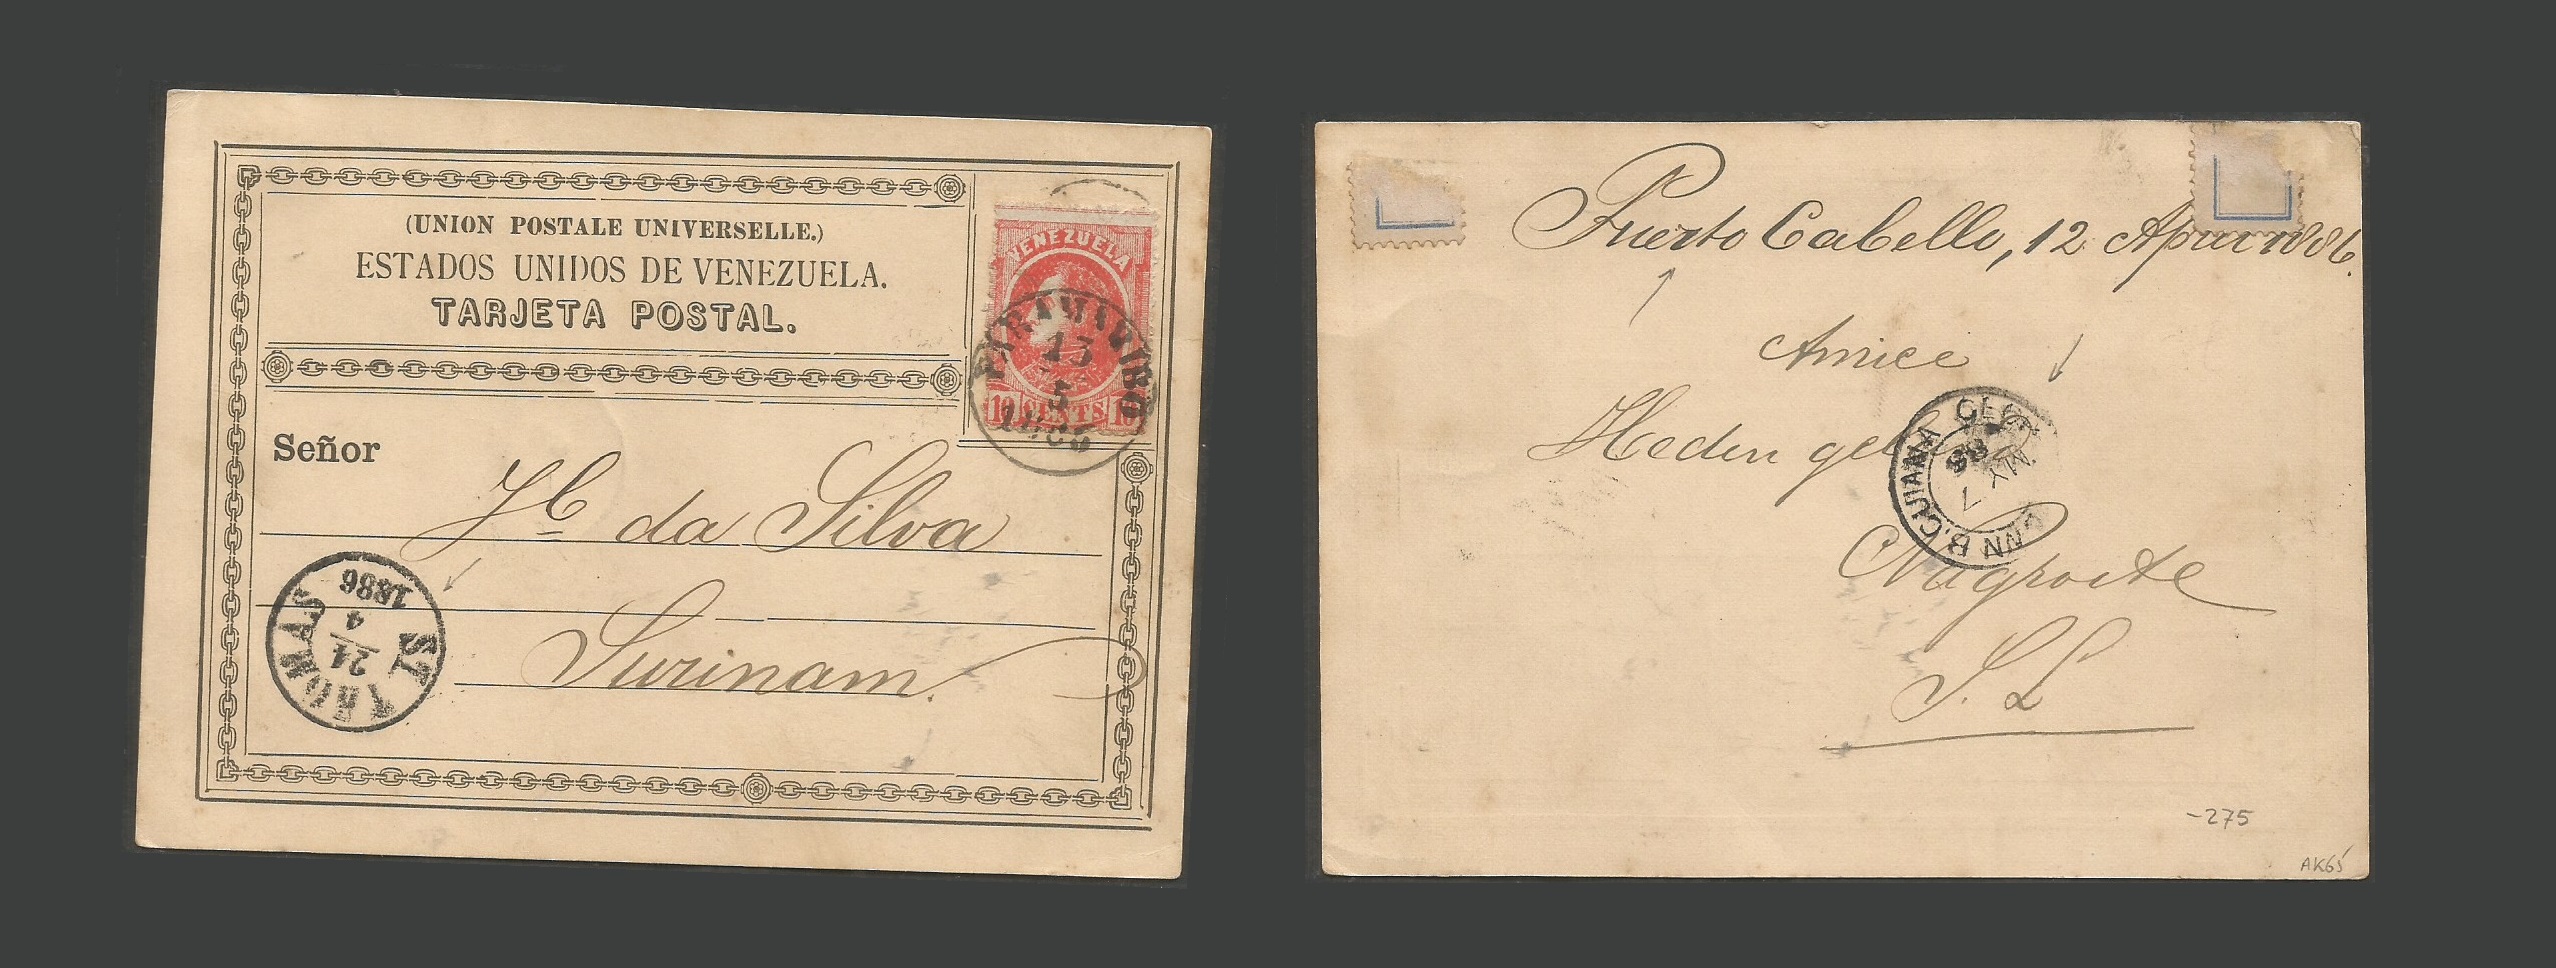 (UNION POSTALE UNIVERSELLE.)
ESTADOS UNIDOS DE VENEZUELA.
TARJETA POSTAL.
VENEZUELA
10 CENTS 10
PARAMARIBO
13
5
1886
Señor
da Silva
Surinam.
ST THOMAS
24
4
1886
Puerto Cabello, 12 April 1886.
Amice
Heden
B. GUIANA
MY 7
86
S. L
-275
AK65